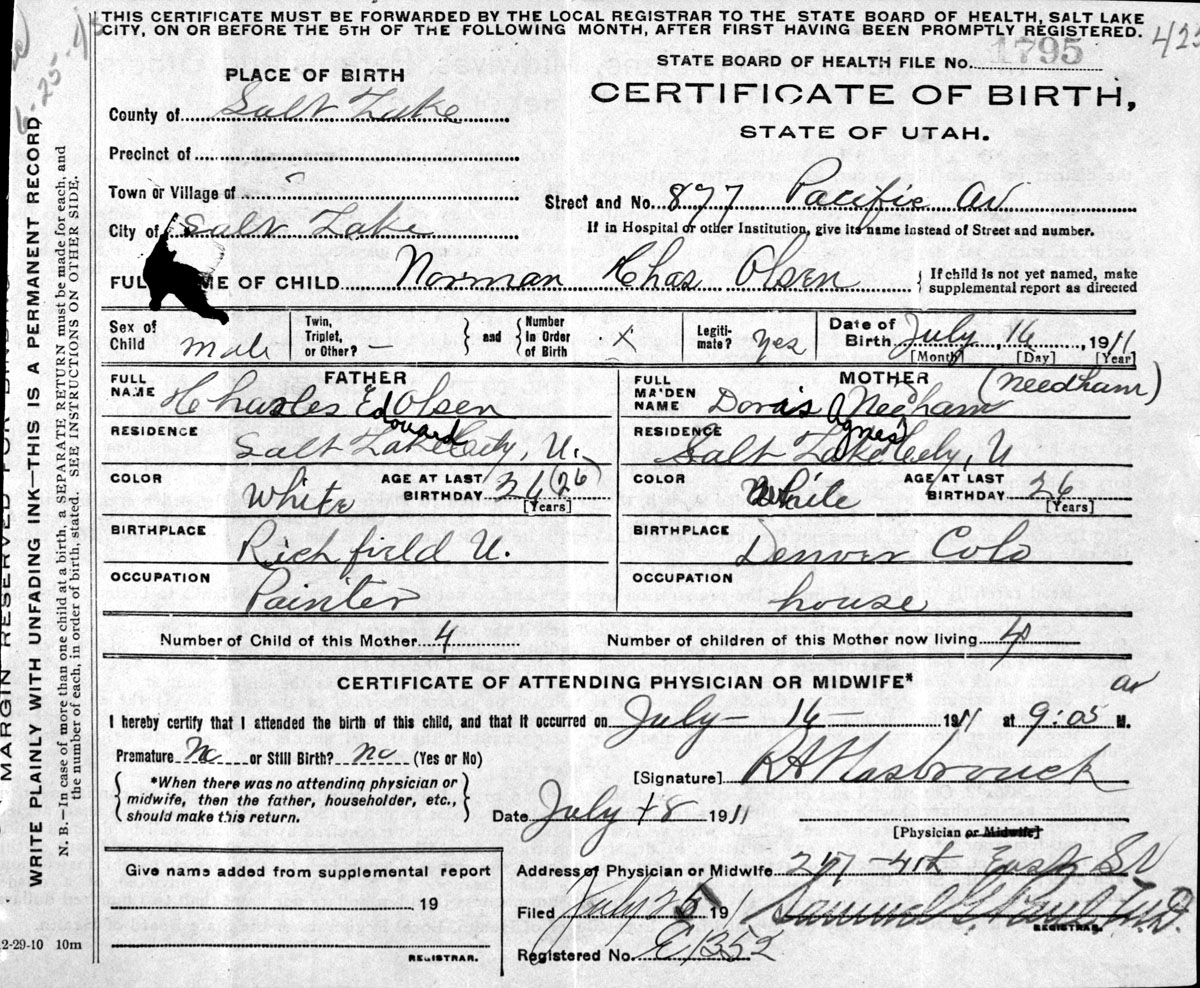 THIS CERTIFICATE MUST BE FORWARDED BY THE LOCAL REGISTRAR TO THE STATE BOARD OF HEALTH, SALT LAKE
CITY, ON OR BEFORE THE 5TH OF THE FOLLOWING MONTH, AFTER FIRST HAVING BEEN PROMPTLY REGISTERED.
STATE BOARD OF HEALTH FILE No. 1795
PLACE OF BIRTH
CERTIFICATE OF BIRTH,
STATE OF UTAH.
County of Salt Lake
Precinct of
Town or Village of
Street and No. 877 Pacific Av
City of Salt Lake
If in Hospital or other Institution, give its name instead of Street and number.
FULL NAME OF CHILD Norman Chas Olsen
If child is not yet named, make
supplemental report as directed
Sex of Child male
Twin, Triplet, or Other? —
and
Number in Order of Birth x
Legitimate? Yes
Date of Birth July 16, 1911
[Month] [Day] [Year]
FATHER
FULL NAME Charles Ed Olsen
Edward
RESIDENCE Salt Lake City, U.
COLOR White
AGE AT LAST BIRTHDAY 26 (26)
[Years]
BIRTHPLACE Richfield U.
OCCUPATION Painter
MOTHER (Needham)
FULL MAIDEN NAME Doras A Needham
Agnes
RESIDENCE Salt Lake City, U
COLOR White
AGE AT LAST BIRTHDAY 26
[Years]
BIRTHPLACE Denver Colo
OCCUPATION house
Number of Child of this Mother 4
Number of children of this Mother now living 4
CERTIFICATE OF ATTENDING PHYSICIAN OR MIDWIFE*
I hereby certify that I attended the birth of this child, and that it occurred on July - 16 - 1911 at 9:05 M.
Premature No or Still Birth? no (Yes or No)
*When there was no attending physician or
midwife, then the father, householder, etc.,
should make this return.
[Signature] R A Hasbrouck
Date July 18 1911
[Physician or Midwife]
Address of Physician or Midwife 217 - 4th East St
Give name added from supplemental report
19
REGISTRAR.
Filed July 25 19
Samuel G. Paul M.D.
REGISTRAR.
Registered No. E1352
2-29-10 10m
MARGIN RESERVED FOR BINDING
WRITE PLAINLY WITH UNFADING INK—THIS IS A PERMANENT RECORD
N. B.—In case of more than one child at a birth, a SEPARATE RETURN must be made for each, and
the number of each, in order of birth, stated. SEE INSTRUCTIONS ON OTHER SIDE.